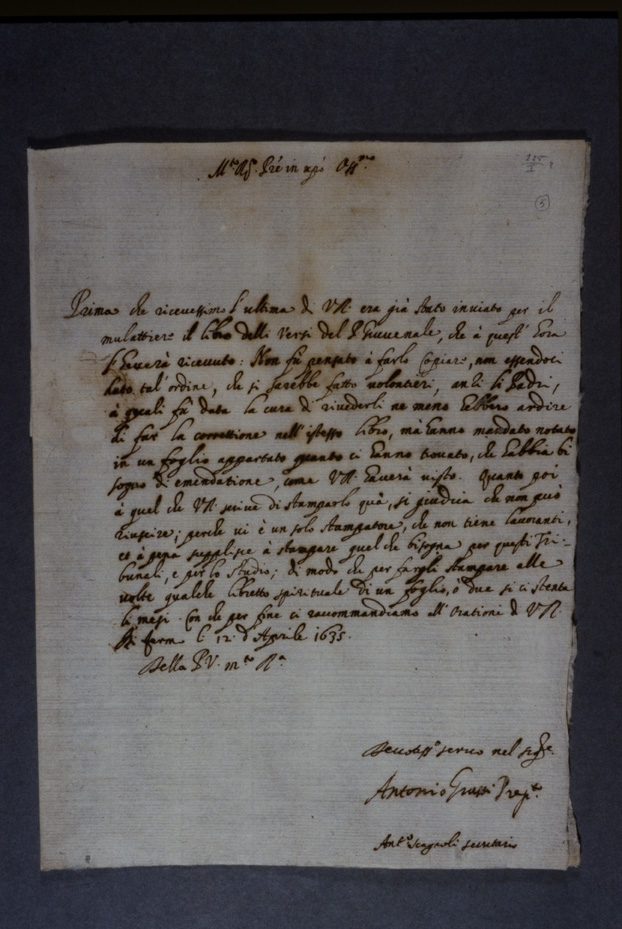 M.to R.do P.re in x.po Oss.mo
5
Prima che ricevessimo l'ultima di V.R. era già stato inviato per il
mulattiero il libro delli Versi del P. Giuvenale, che à quest' hora
l'haverà ricevuto: Non fù pensato à farlo Copiare, non essendoci
dato tal' ordine, che si sarebbe fatto volontieri, anzi li Padri,
à quali fù data la cura di rivederli ne meno hebbero ardire
di far la correttione nell' istesso libro, mà hanno mandato notato
in un foglio appartato quanto ci hanno trovato, che habbia bi
sogno di emendatione, come V.R. haverà visto. Quanto poi
à quel che V.R. scrive di stamparlo quà, si giudica che non può
riuscire; perche vi è un solo stampatore, che non tiene lavoranti,
et à pena supplisce à stampare quel che bisogna per questi Tri-
bunali, e per lo Studio; di modo che per fargli stampare alle
volte qualche libretto spirituale di un foglio, ò due si ci stenta
li mesi. Con che per fine ci raccommandiamo all' Orationi di V.R.
Di fermo li 12 d'Aprile 1635.
Della P.V. m.to R.da
Devotiss.o servo nel sig.re
Antonio Grassi Prep.to
Ant.o Scagnoli secretario